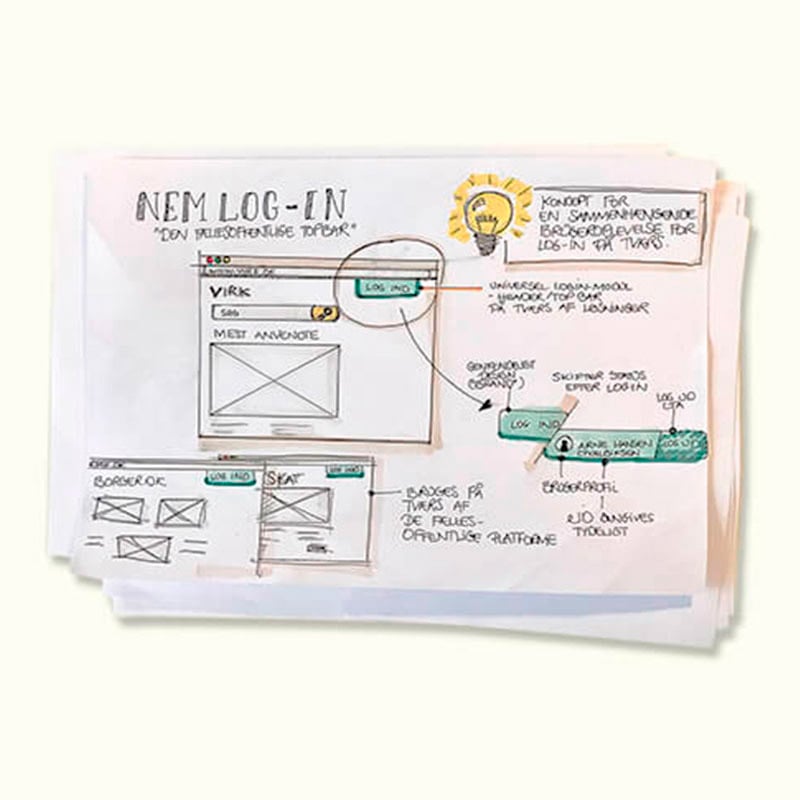 NEM LOG-IN
"DEN FÆLLESOFFENTLIGE TOPBAR"
KONCEPT FOR
EN SAMMENHÆNGENDE
BRUGEROPLEVELSE FOR
LOG-IN PÅ TVÆRS.
VIRK.DK
VIRK
LOG IND
SØG
MEST ANVENDTE
UNIVERSEL LOGIN-MODUL
- HEADER/TOPBAR
PÅ TVÆRS AF LØSNINGER
GENKENDELIGT
DESIGN
(BRAND)
SKIFTER STATUS
EFTER LOGIN
LOG UD
CTA
LOG IND
ARNE HANSEN
LOG UD
BRUGERPROFIL
ID ANGIVES
TYDELIGT
BORGER.DK
BORGER.DK
LOG IND
SKAT
LOG IND
BRUGES PÅ
TVÆRS AF
DE FÆLLES-
OFFENTLIGE PLATFORME